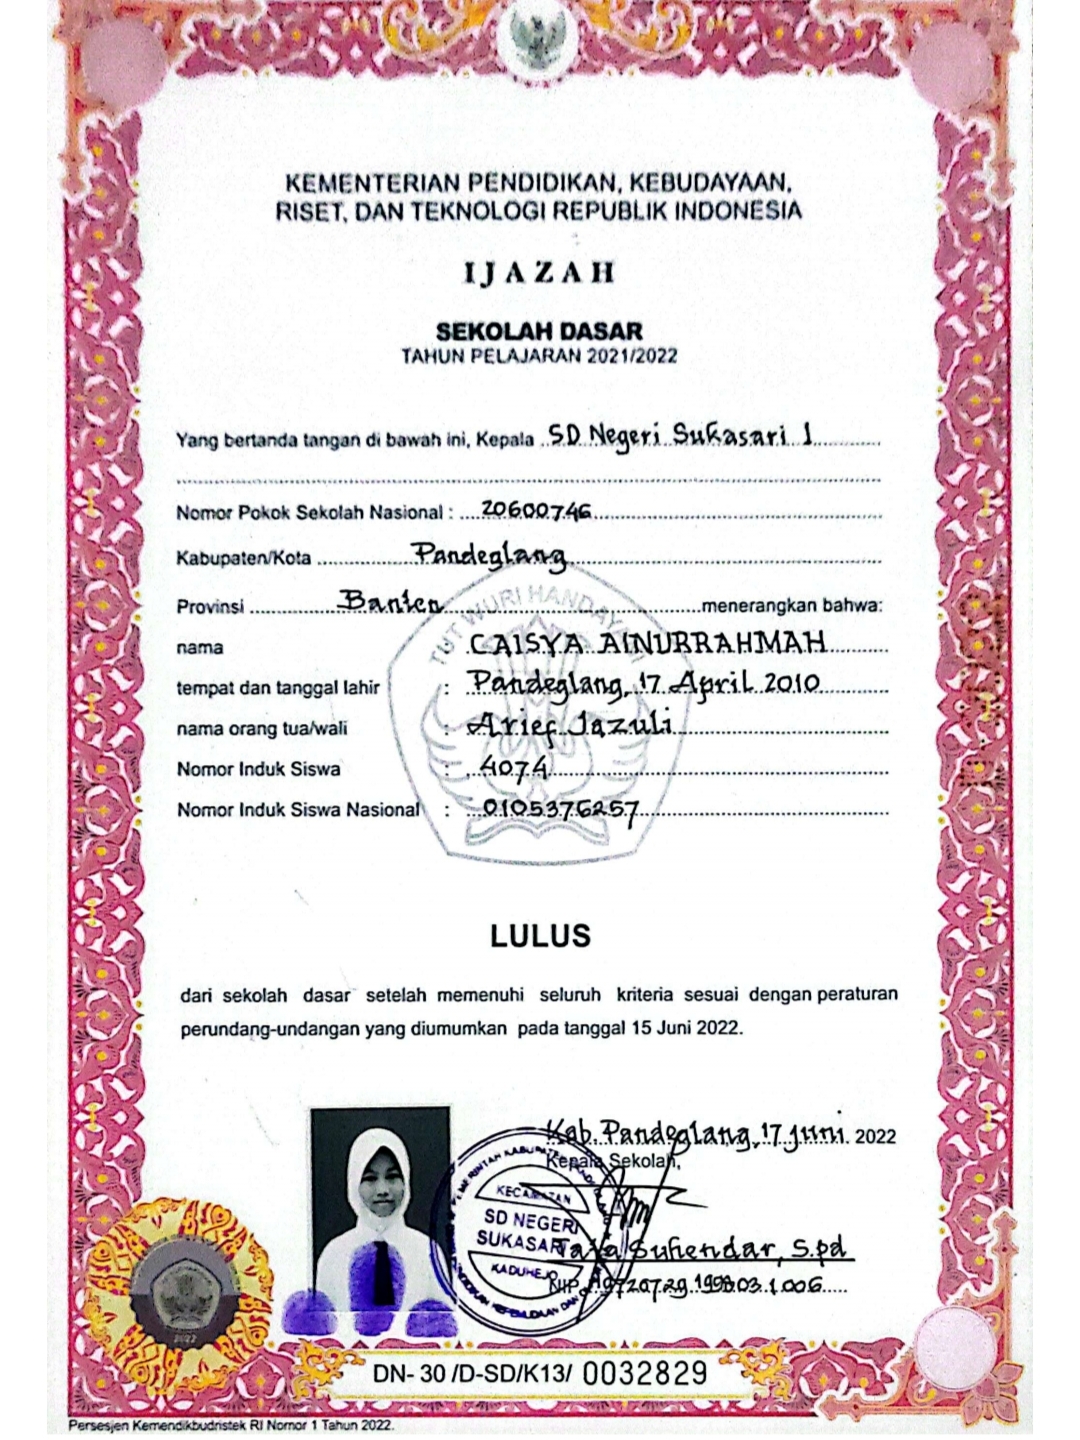 KEMENTERIAN PENDIDIKAN, KEBUDAYAAN,
RISET, DAN TEKNOLOGI REPUBLIK INDONESIA
IJAZAH
SEKOLAH DASAR
TAHUN PELAJARAN 2021/2022
Yang bertanda tangan di bawah ini, Kepala SD Negeri Sukasari 1
Nomor Pokok Sekolah Nasional : 20600746
Kabupaten/Kota Pandeglang
Provinsi Banten menerangkan bahwa:
TUT WURI HANDAYANI
nama : CAISYA AINURRAHMAH
tempat dan tanggal lahir : Pandeglang, 17 April 2010
nama orang tua/wali : Arief Jazuli
Nomor Induk Siswa : 4074
Nomor Induk Siswa Nasional : 0105376257
LULUS
dari sekolah dasar setelah memenuhi seluruh kriteria sesuai dengan peraturan
perundang-undangan yang diumumkan pada tanggal 15 Juni 2022.
Kab. Pandeglang, 17 Juni 2022
Kepala Sekolah,
KECAMATAN
SD NEGERI
SUKASARI
KADUHEJO
Suhendar, S.pd
NIP.
2022
DN- 30 /D-SD/K13/ 0032829
Persesjen Kemendikbudristek RI Nomor 1 Tahun 2022.